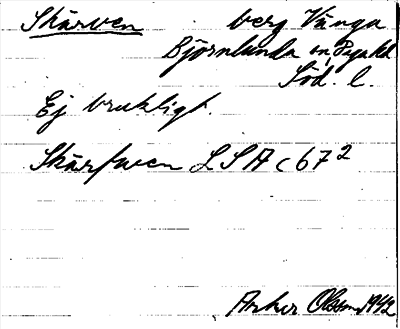 Skärven berg Vånga
Björnlunda sn
Söd. l.
Ej brukligt.
Skärfwen LSA c 67²
Olsson 1942